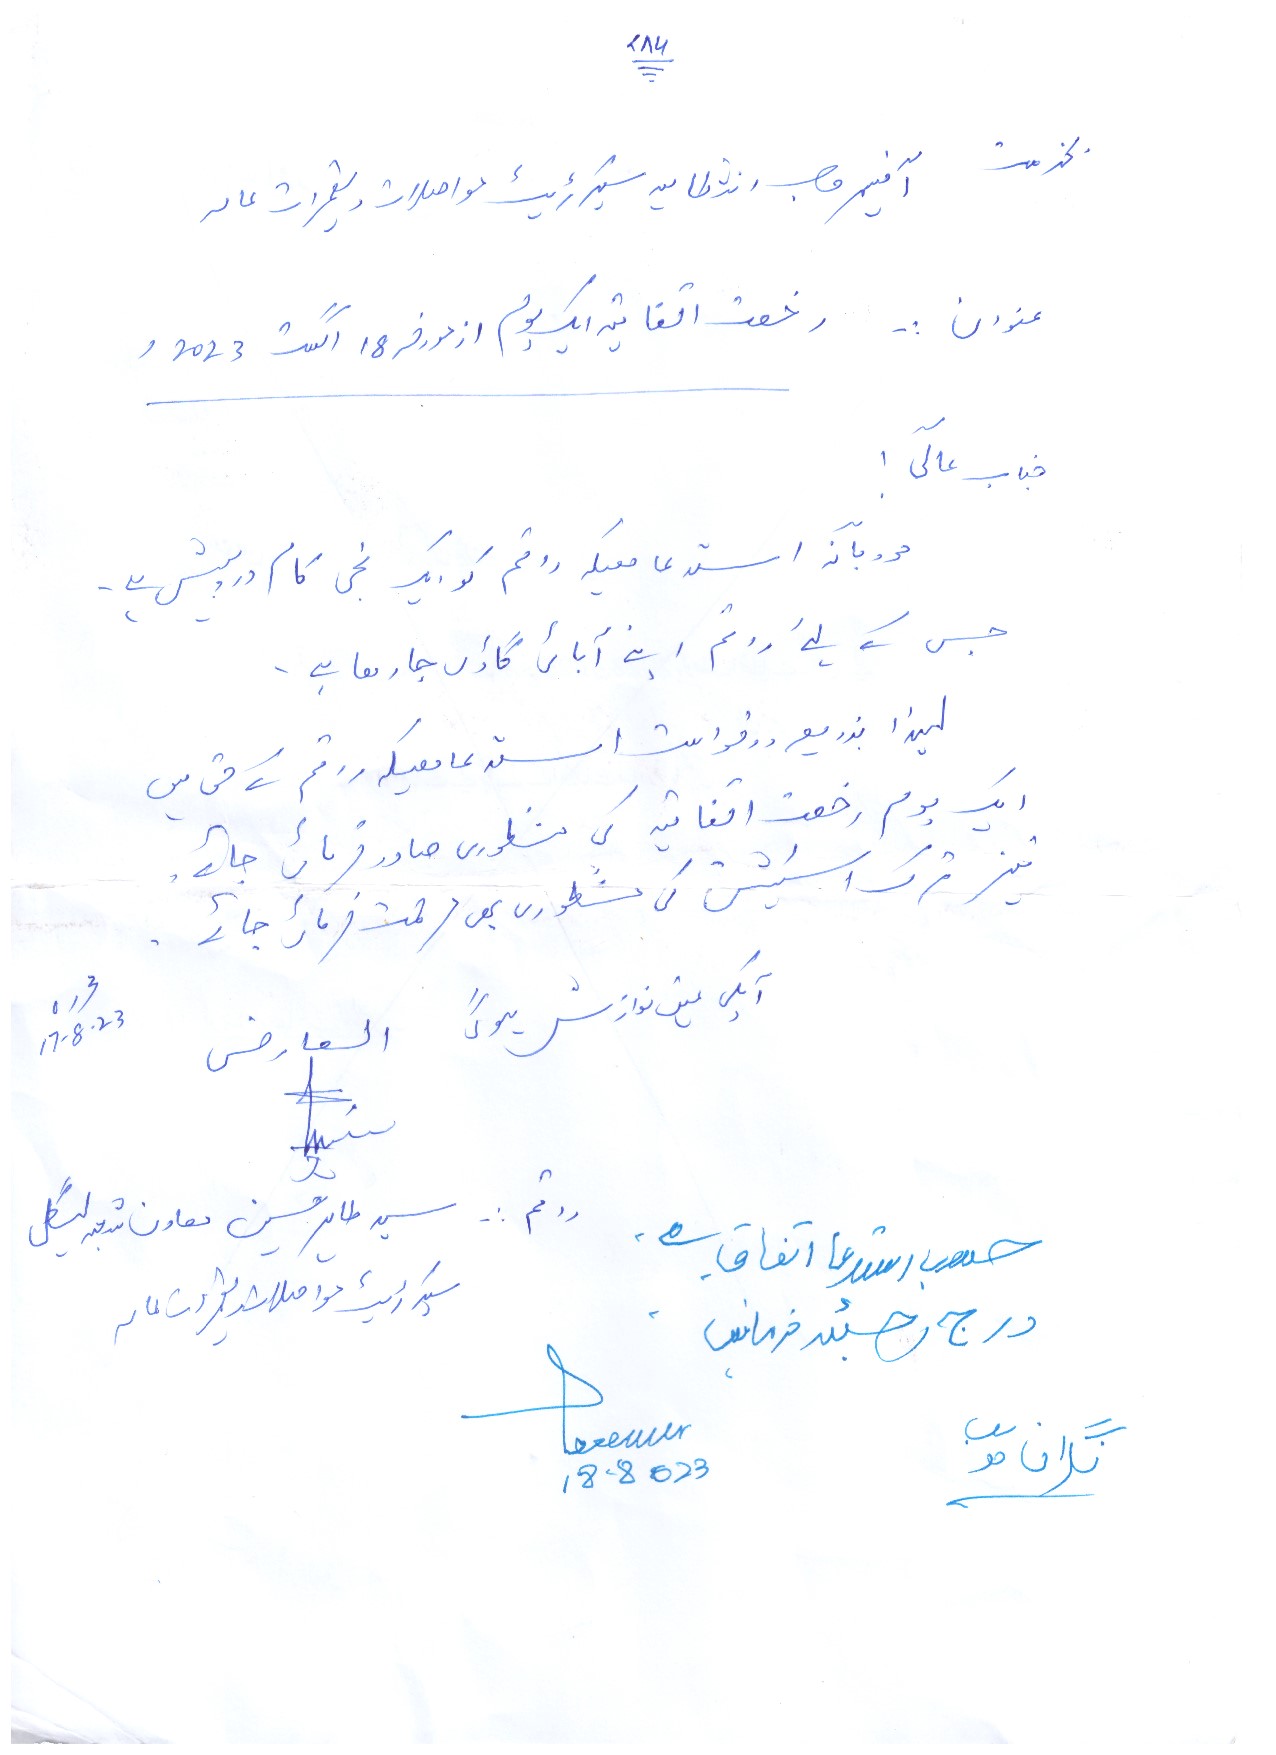 ۷۸۶
بخدمت آفیسر صاحب انتظامیہ سیکرٹریٹ مواصلات و تعمیرات عامہ
عنوان :۔ رخصت اتفاقیہ ایک یوم از مورخہ 18 اگست 2023 ء
جناب عالی !
مودبانہ استدعا ھیکہ راقم کو ایک نجی کام درپیش ہے ۔
جس کے لیئے راقم اپنے آبائی گاؤں جا رھا ہے ۔
لہذا بذریعہ درخواست استدعا ھیکہ راقم کے حق میں
ایک یوم رخصت اتفاقیہ کی منظوری صادر فرمائی جائے ۔
نیز ترک اسٹیشن کی منظوری بھی مرحمت فرمائی جائے ۔
آپکی عین نوازش ہوگی
العارض
محررہ
17-8-23
راقم :۔ سید طاہر حسین معاون شعبہ لیگل
سیکرٹریٹ مواصلات و تعمیرات عامہ
حسب استدعا اتفاقیہ
درج رجسٹر فرمائیں
18-8-023
نگران صاحب